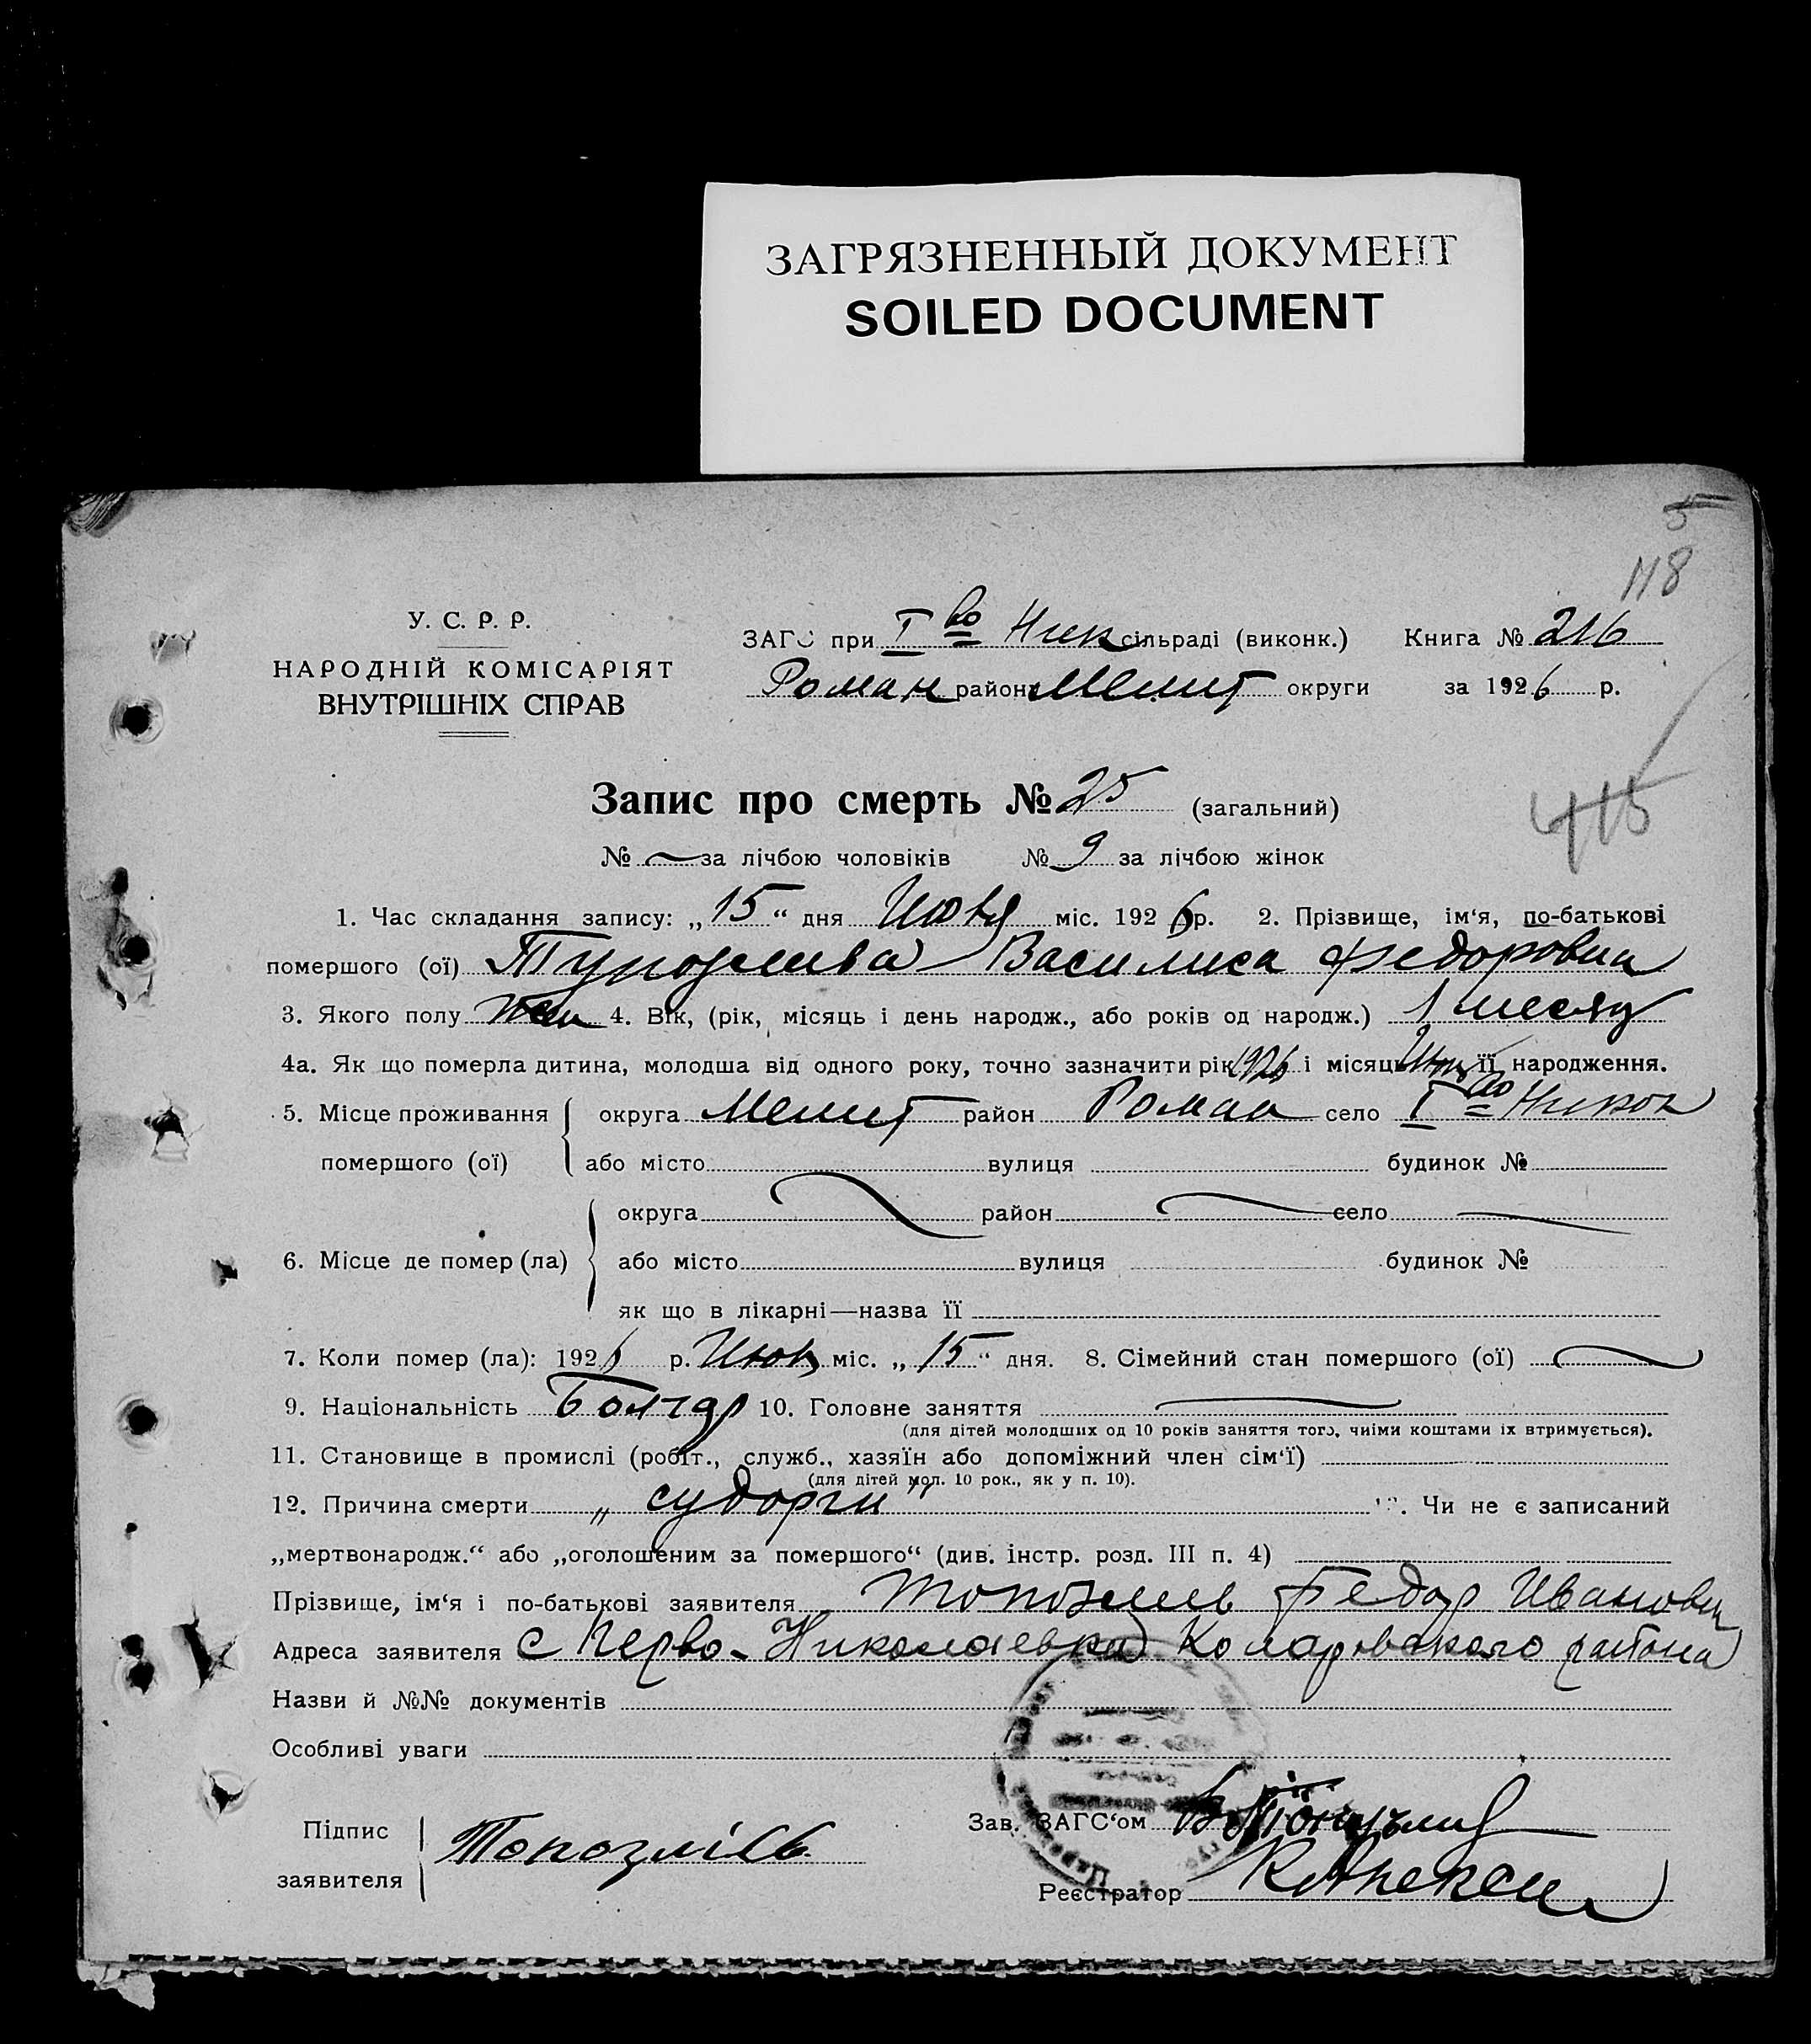 ЗАГРЯЗНЕННЫЙ ДОКУМЕНТ
SOILED DOCUMENT
5
118
У. С. Р. Р.
НАРОДНІЙ КОМІСАРІЯТ
ВНУТРІШНІХ СПРАВ
ЗАГС при I во Ник сільраді (виконк.) Книга № 216
Роман район Мелит округи за 1926 р.
Запис про смерть № 25 (загальний)
415
№ за лічбою чоловіків № 9 за лічбою жінок
1. Час складання запису: „15“ дня Июля міс. 1926 р. 2. Прізвище, ім‘я, по-батькові
помершого (ої) Василиса Федоровна
3. Якого полу жен 4. Вік, (рік, місяць і день народж., або років од народж.) 1 месяц
4а. Як що померла дитина, молодша від одного року, точно зазначити рік 1926 і місяць її народження.
5. Місце проживання округа Мелит район Роман село I во Никол
помершого (ої) або місто вулиця будинок №
округа район село
6. Місце де помер (ла) або місто вулиця будинок №
як що в лікарні—назва її
7. Коли помер (ла): 1926 р. Июль міс. „15“ дня. 8. Сімейний стан помершого (ої)
9. Національність Болгар 10. Головне заняття
(для дітей молодших од 10 років заняття того, чиїми коштами їх втримується).
11. Становище в промислі (робіт., служб., хазяїн або допоміжний член сім‘ї)
(для дітей мол. 10 рок., як у п. 10).
12. Причина смерти „судорги" . Чи не є записаний
„мертвонародж.“ або „оголошеним за помершого“ (див. інстр. розд. III п. 4)
Прізвище, ім‘я і по-батькові заявителя Федор Иванович
Адреса заявителя с Перво-Николаевка Коларовского района
Назви й №№ документів
Особливі уваги
Підпис
заявителя
Зав. ЗАГС‘ом
Реєстратор